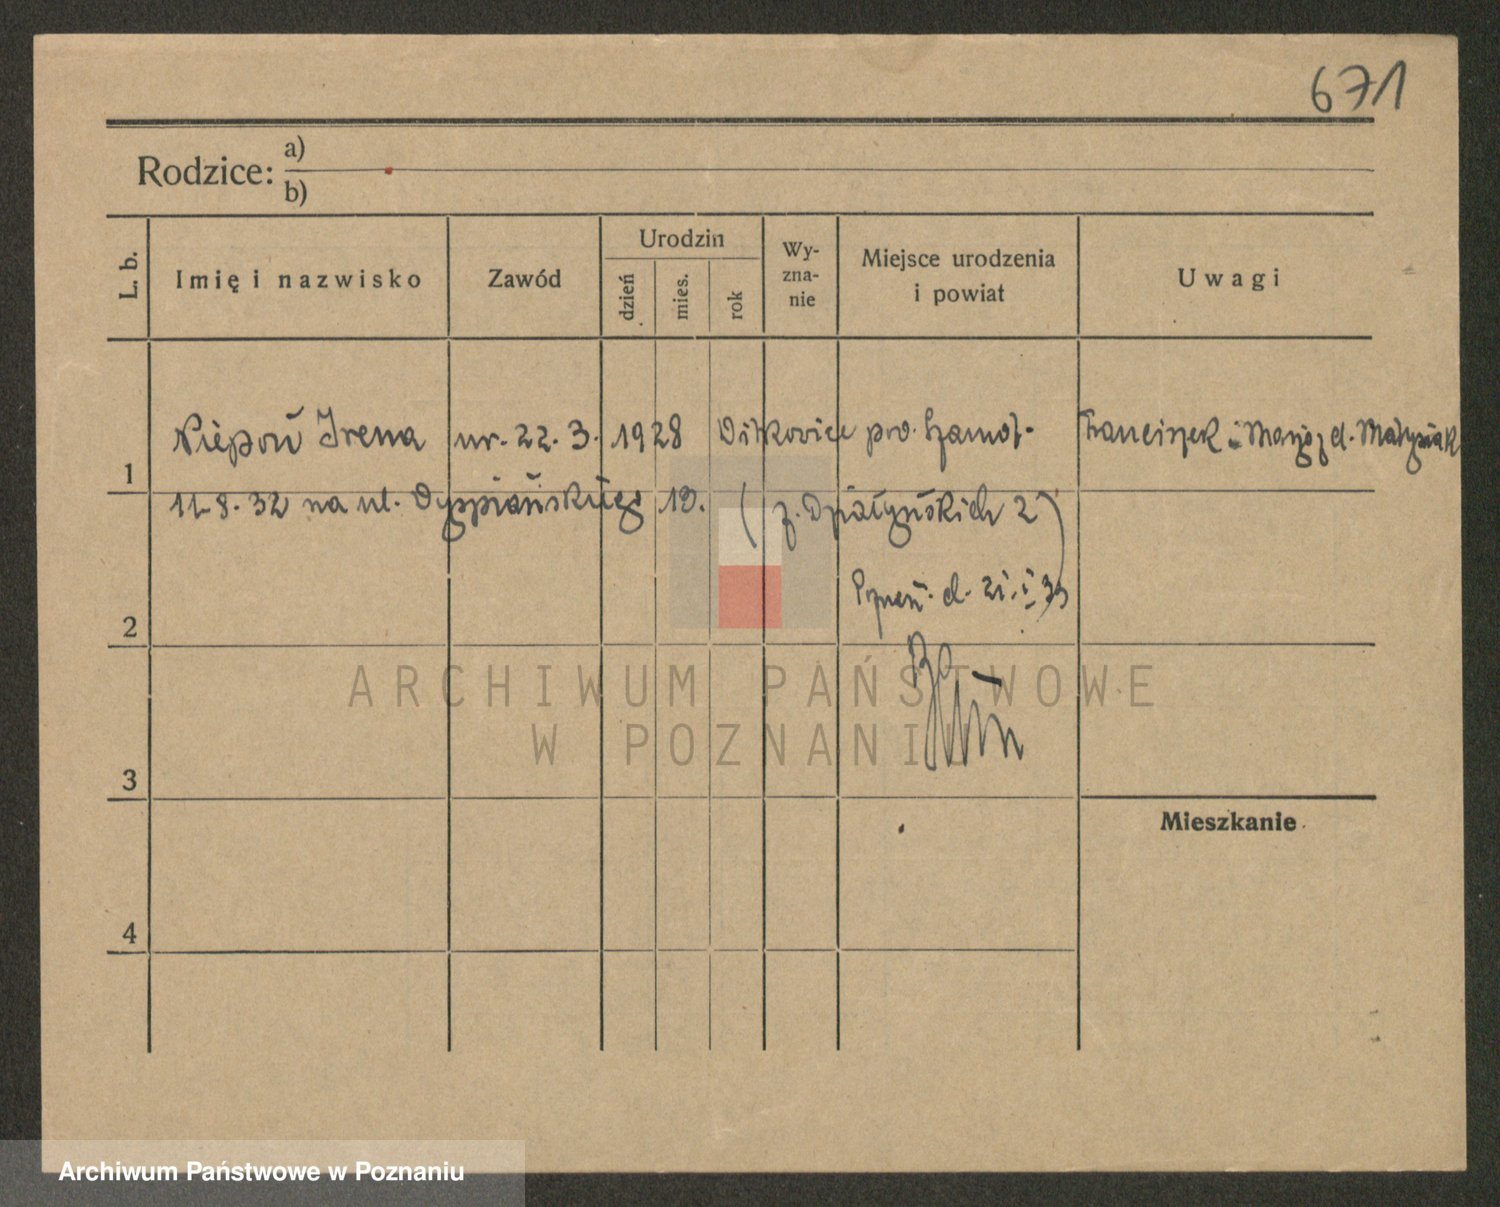 671
Rodzice: a)
b)
L. b.
Imię i nazwisko
Zawód
Urodzin
dzień
mies.
rok
Wy-
zna-
nie
Miejsce urodzenia
i powiat
Uwagi
1
Niepoń Irena ur. 22. 3. 1928 pow. Szamot- Franciszek i Marja z d. Matysiak
11-8. 32 na ul. 19. (z. Działyńskich 2)
Poznań. d. 21. I. 33
2
3
4
Mieszkanie
ARCHIWUM PAŃSTWOWE
W POZNANIU
Archiwum Państwowe w Poznaniu